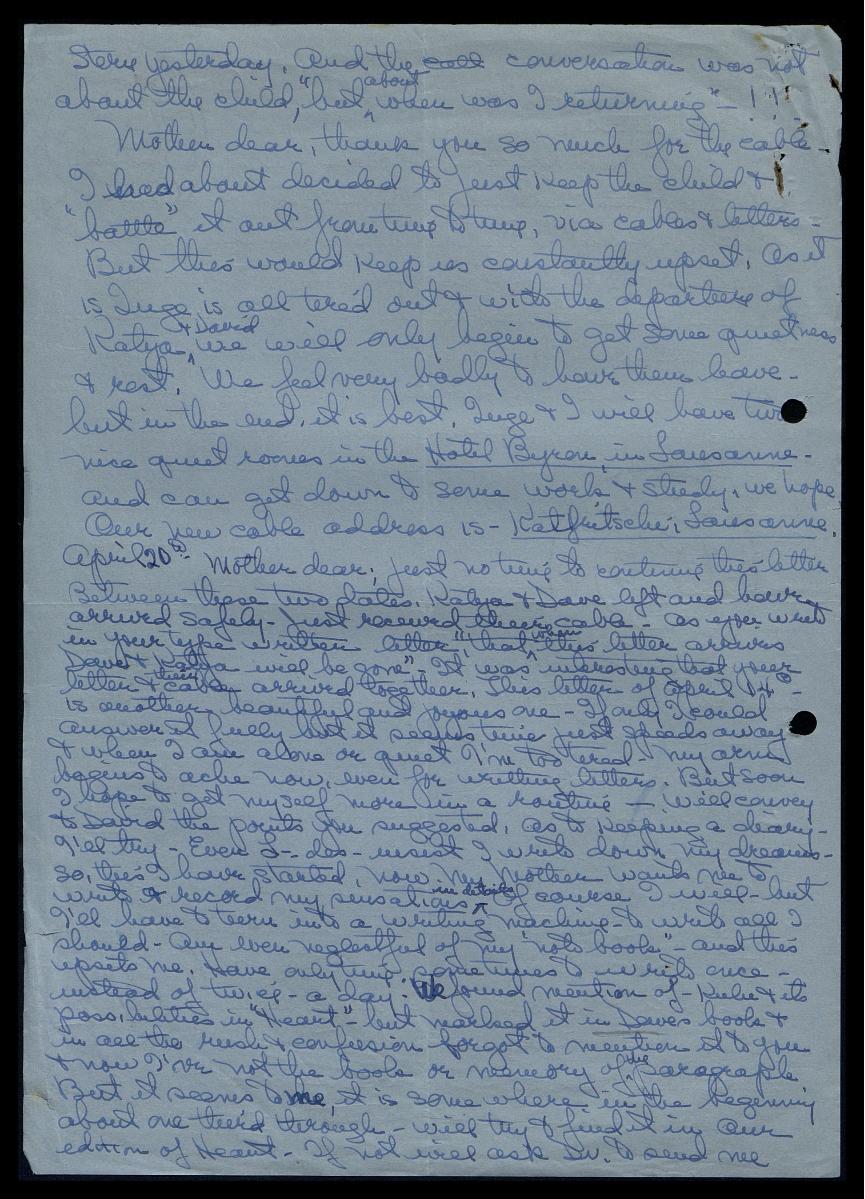 Steve yesterday. And the call conversation was not
about the child, "but about when was I returning" - ! ! !
Mother dear, thank you so much for the cable -
I had about decided to just keep the child &
"battle" it out from time to time, via cables & letters -
But this would keep us constantly upset. As it
is Inge is all tired out & with the departure of
Katya & David we will only begin to get some quietness
& rest. We feel very badly to have them leave -
but in the end, it is best. Inge & I will have two
nice quiet rooms in the Hotel Byron, in Lausanne -
and can get down to some work & study, we hope.
Our new cable address is - Katfritschi, Lausanne.
April 20th - Mother dear; just no time to continue this letter
Between these two dates. Katya & Dave left and have
arrived safely - Just received their cable - as you write
in your type written letter, "that when this letter arrives
Dave & Katya will be gone" - It was interesting that your
letter & their cable arrived together. This letter of April 14th -
is another beautiful and joyous one - If only I could
answer it fully but it seems time just speeds away
& when I am alone or quiet I'm too tired - my arms
begins to ache now, even for writing letters. But soon
I hope to get myself more in a routine - will convey
to David the points you suggested, as to keeping a diary -
I'll try - Even insist I write down my dreams -
so, this I have started, now my Mother wants me to
write & record my sensations in detail. Of course I will - but
I'll have to turn into a writing machine - to write all I
should - am even neglectful of my "note book" - and this
upsets me. Have only time sometimes to write once -
instead of twice - a day. We found mention of - & its
possibilities in "Heart" - but marked it in Daves book &
in all the rush & confusion forgot to mention it to you
& now I've not the book or memory of the paragraph
But it seems to me, it is some where in the beginning
about one third through - will try & find it in our
edition of Heart - If not will ask Sv. to send me